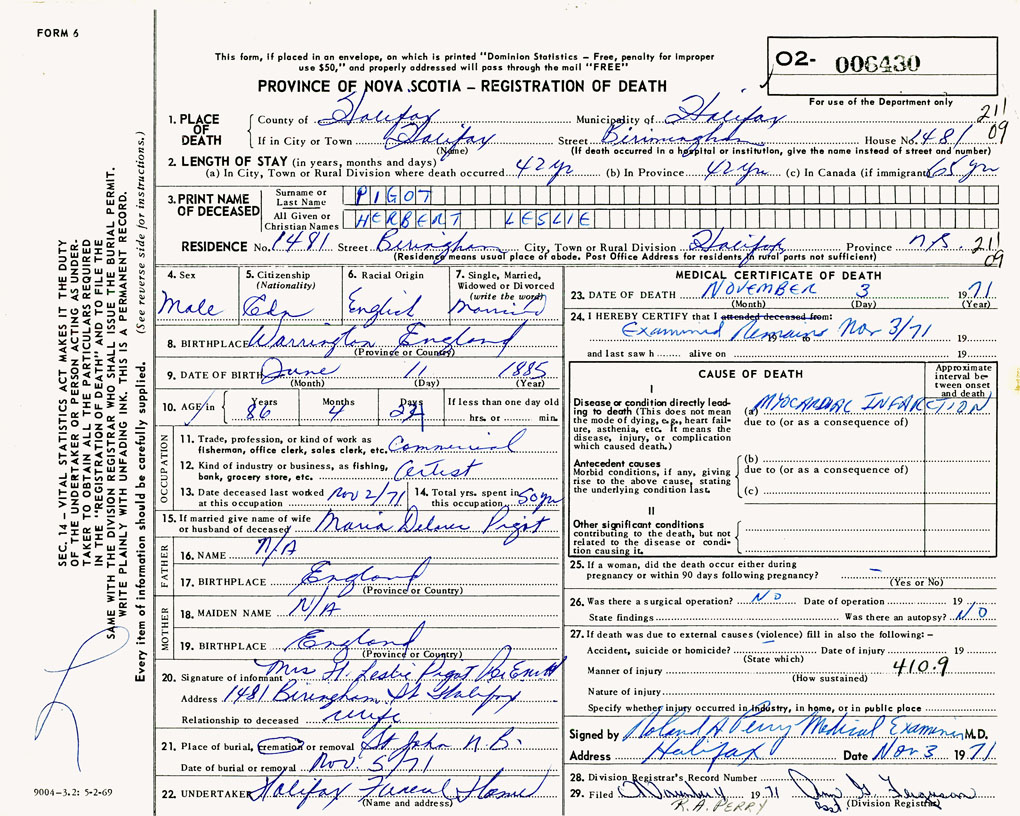 FORM 6
This form, if placed in an envelope, on which is printed "Dominion Statistics – Free, penalty for improper
use $50," and properly addressed will pass through the mail "FREE"
PROVINCE OF NOVA SCOTIA – REGISTRATION OF DEATH
02- 006430
For use of the Department only
211
09
1. PLACE OF DEATH
County of Halifax Municipality of Halifax
If in City or Town Halifax Street Birimingham House No. 1481
(Name) (If death occurred in a hospital or institution, give the name instead of street and number)
2. LENGTH OF STAY (in years, months and days)
(a) In City, Town or Rural Division where death occurred 42 yr (b) In Province 42 yr (c) In Canada (if immigrant) 65 yr
3. PRINT NAME OF DECEASED
Surname or Last Name PIGOT
All Given or Christian Names HERBERT LESLIE
RESIDENCE No. 1481 Street Biringham City, Town or Rural Division Halifax Province N.S. 211
09
(Residence means usual place of abode. Post Office Address for residents in rural parts not sufficient)
4. Sex
Male
5. Citizenship
(Nationality)
Cdn
6. Racial Origin
English
7. Single, Married,
Widowed or Divorced
(write the word)
Married
8. BIRTHPLACE Warrington England
(Province or Country)
9. DATE OF BIRTH June 11 1885
(Month) (Day) (Year)
10. AGE in Years Months Days If less than one day old
86 4 hrs. or min.
OCCUPATION
11. Trade, profession, or kind of work as
fisherman, office clerk, sales clerk, etc. Commercial
12. Kind of industry or business, as fishing,
bank, grocery store, etc. Artist
13. Date deceased last worked at this occupation Nov 2/71
14. Total yrs. spent in this occupation 50 yr
15. If married give name of wife
or husband of deceased Maria Pigot
FATHER
16. NAME N/A
17. BIRTHPLACE England
(Province or Country)
MOTHER
18. MAIDEN NAME N/A
19. BIRTHPLACE England
(Province or Country)
20. Signature of informant Mrs H. Leslie Pigot
Address 1481 Biringham St Halifax
Relationship to deceased wife
21. Place of burial, cremation or removal St John N.B.
Date of burial or removal Nov. 5/71
22. UNDERTAKER Halifax Funeral Home
(Name and address)
MEDICAL CERTIFICATE OF DEATH
23. DATE OF DEATH NOVEMBER 3 1971
(Month) (Day) (Year)
24. I HEREBY CERTIFY that I attended deceased from:
Examined Remains Nov 3/71 19
19 to
and last saw h alive on 19
CAUSE OF DEATH
Approximate interval between onset and death
I
Disease or condition directly leading to death (This does not mean the mode of dying, e.g., heart failure, asthenia, etc. It means the disease, injury, or complication which caused death.)
(a) MYOCARDIAL INFARCTION
due to (or as a consequence of)
Antecedent causes
Morbid conditions, if any, giving rise to the above cause, stating the underlying condition last.
(b)
due to (or as a consequence of)
(c)
II
Other significant conditions
contributing to the death, but not related to the disease or condition causing it.
25. If a woman, did the death occur either during
pregnancy or within 90 days following pregnancy? –
(Yes or No)
26. Was there a surgical operation? NO Date of operation 19
State findings Was there an autopsy? NO
27. If death was due to external causes (violence) fill in also the following: –
Accident, suicide or homicide? – Date of injury 19
(State which)
Manner of injury 410.9
(How sustained)
Nature of injury
Specify whether injury occurred in industry, in home, or in public place
Signed by Roland A Perry Medical Examiner M.D.
Address Halifax Date Nov 3 1971
28. Division Registrar's Record Number
29. Filed November 4 1971 Ferguson
R.A. PERRY (Division Registrar)
SEC. 14 – VITAL STATISTICS ACT MAKES IT THE DUTY
OF THE UNDERTAKER OR PERSON ACTING AS UNDERTAKER
TO OBTAIN ALL THE PARTICULARS REQUIRED
IN THE "REGISTRATION OF DEATH" AND TO FILE THE
SAME WITH THE DIVISION REGISTRAR WHO SHALL ISSUE THE BURIAL PERMIT.
WRITE PLAINLY WITH UNFADING INK. THIS IS A PERMANENT RECORD.
Every item of information should be carefully supplied. (See reverse side for instructions.)
9004–3.2: 5-2-69